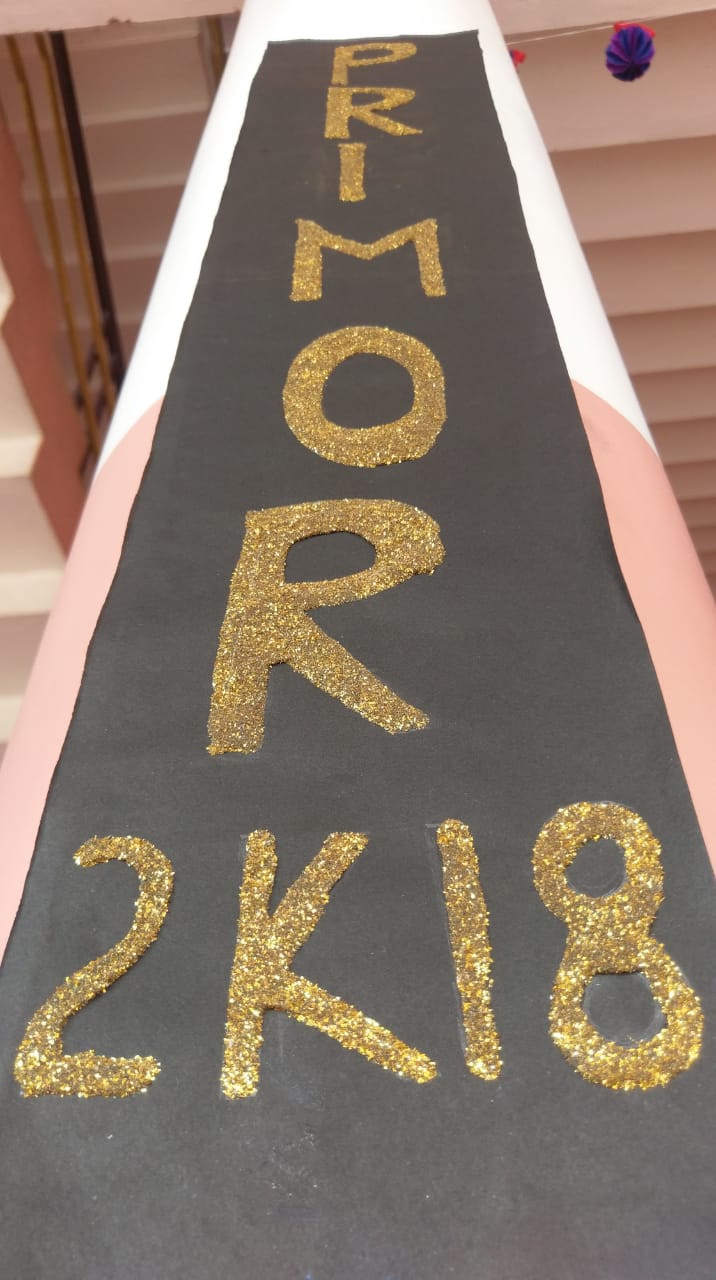 P
R
I
M
O
R
2K18